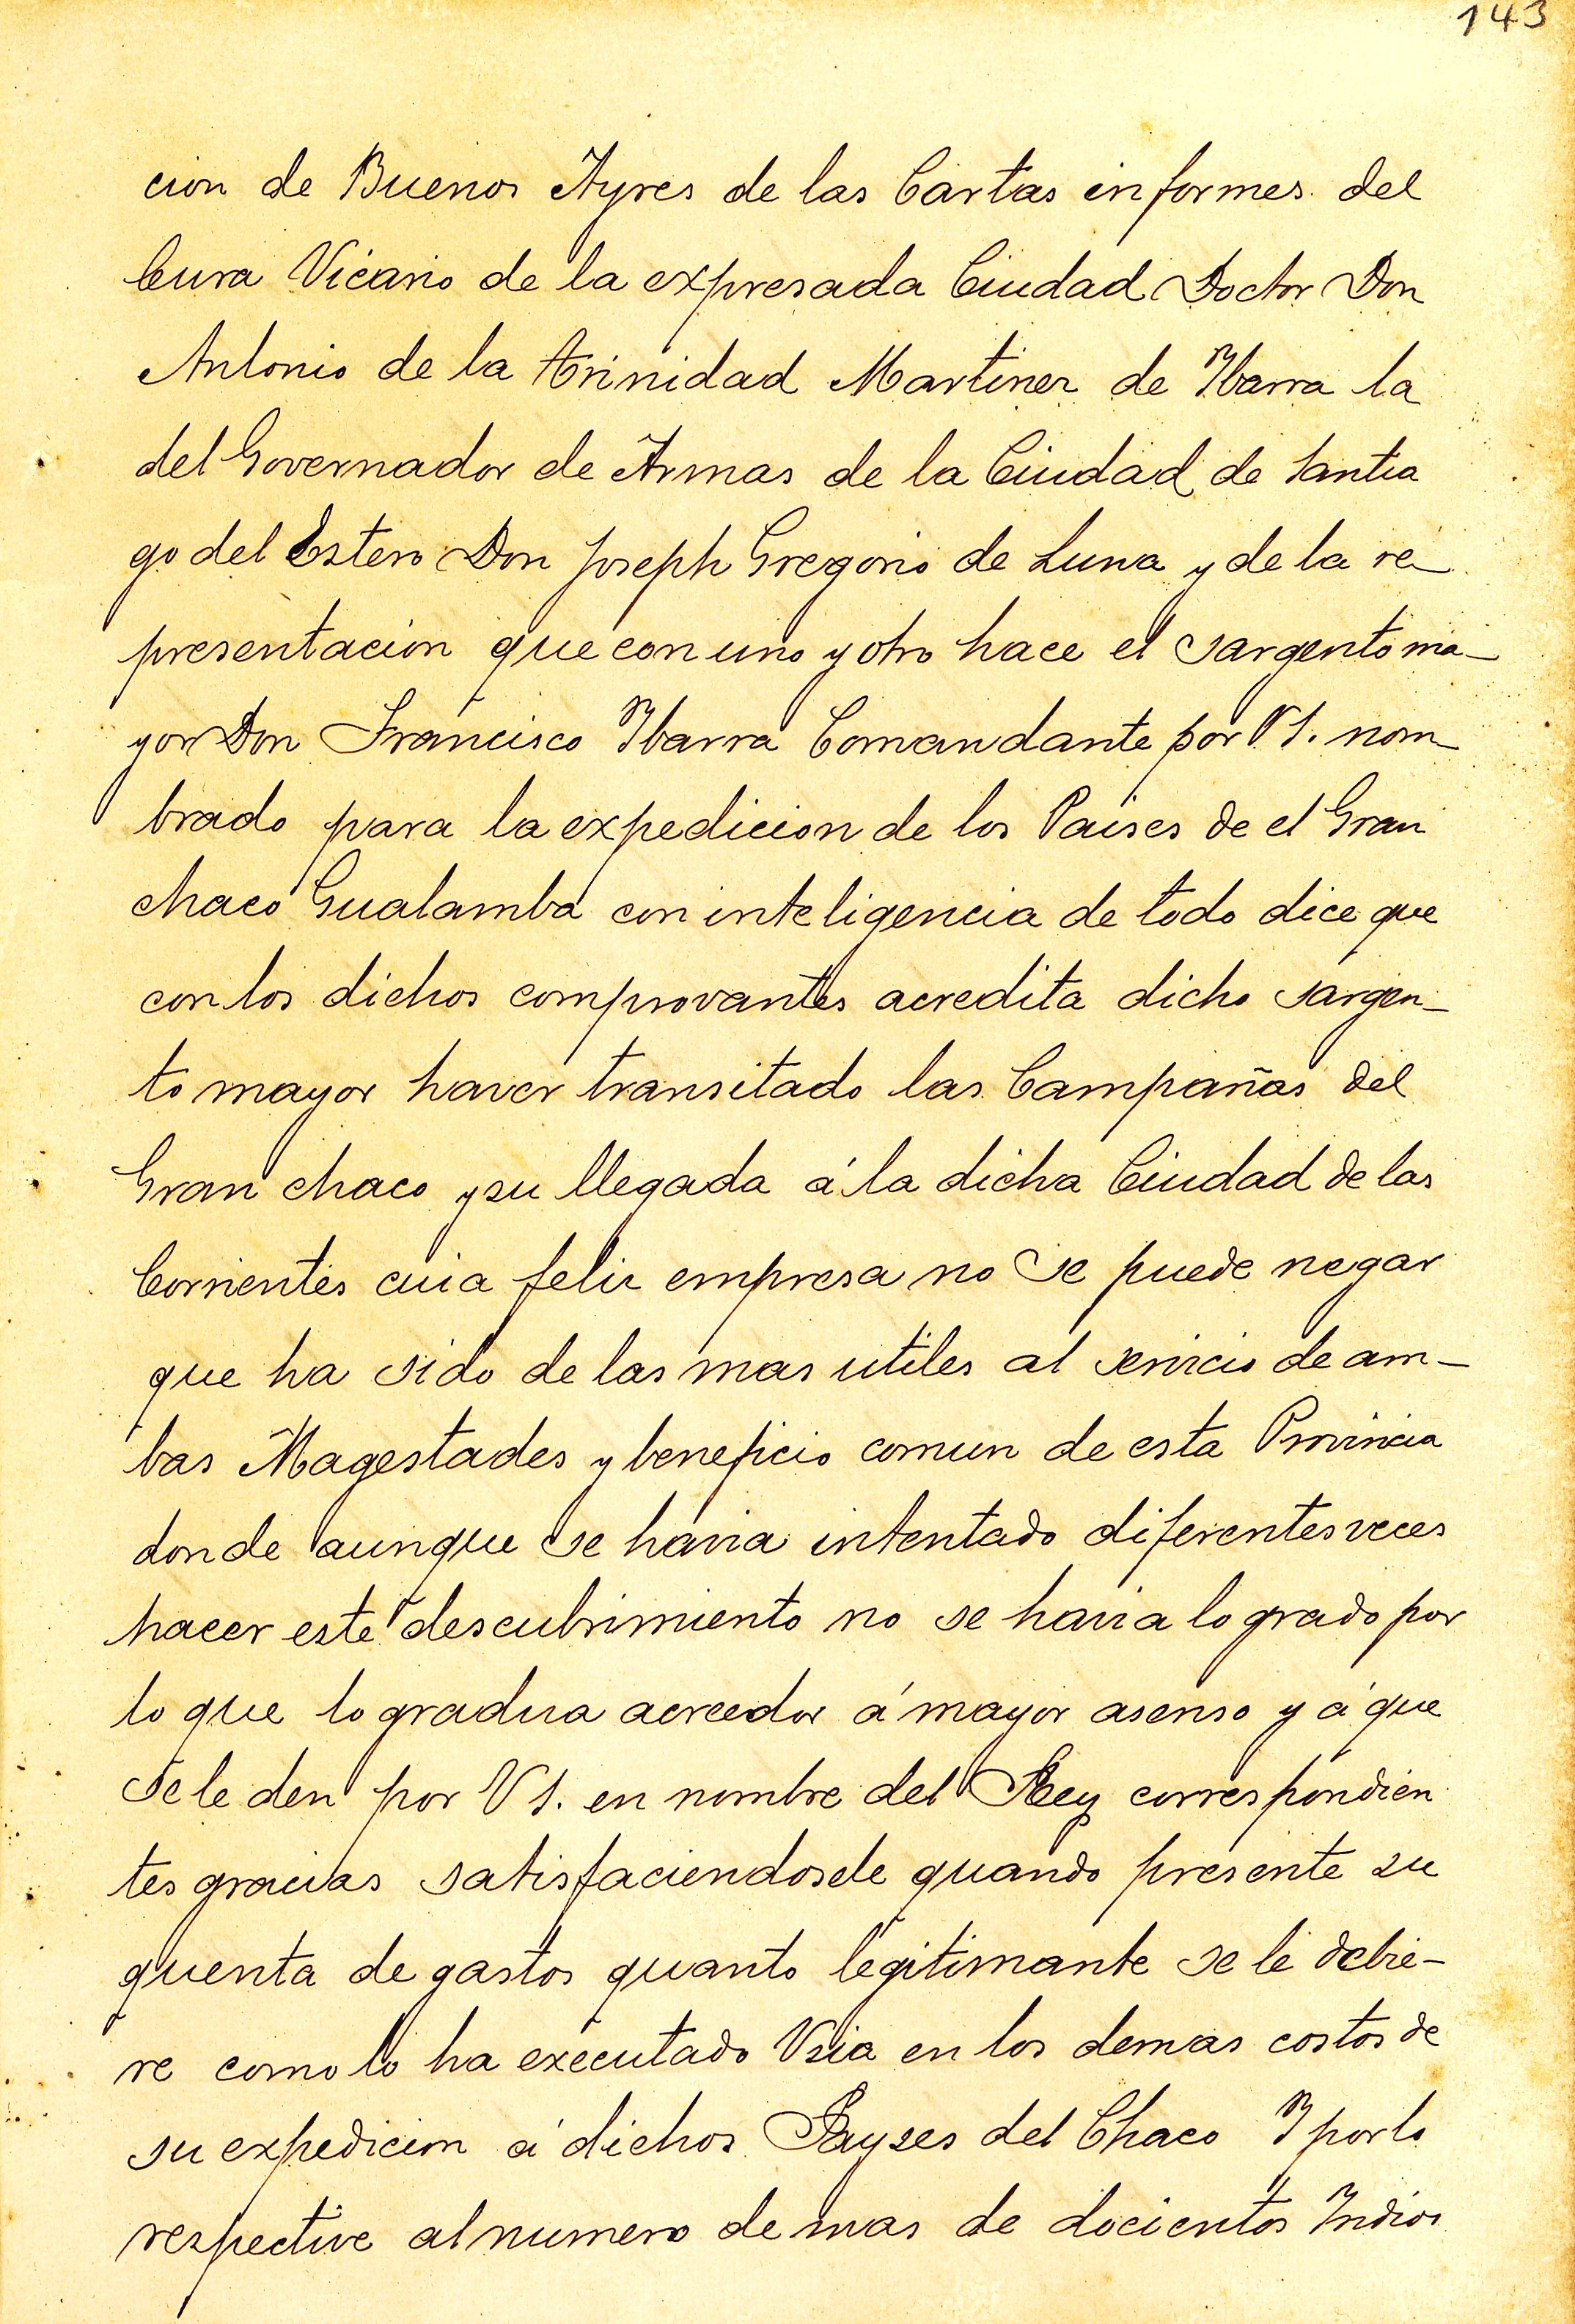 143
cion de Buenos Ayres de las Cartas informes del
Cura Vicario de la expresada Ciudad Doctor Don
Antonio de la trinidad Martinez de Ybarra la
del Governador de Armas de la Ciudad de Santia
go del Estero Don Joseph Gregorio de Luna y de la re_
presentacion que con uno y otro hace el sargento ma_
yor Don Francisco Ybarra Comandante por V S. nom_
brado para la expedicion de los Paises de el Gran
chaco Gualamba con inteligencia de todo dice que
con los dichos comprovantes acredita dicho sargen_
to mayor haver transitado las Campañas del
Gran chaco y su llegada á la dicha Ciudad de las
Corrientes cuia feliz empresa no se puede negar
que ha sido de las mas utiles al servicio de am_
bas Magestades y beneficio comun de esta Provincia
donde aunque se havia intentado diferentes veces
hacer este descubrimiento no se havia logrado por
lo que lo gradua acreedor á mayor asenso y á que
se le den por V S. en nombre del Rey correspondien
tes gracias satisfaciendosele quando presente su
quenta de gastos quanto legitimante se le debie-
re como lo ha executado Vsia en los demas costos de
su expedicion á dichos Payses del Chaco Y por lo
respective al numero de mas de docientos Indios